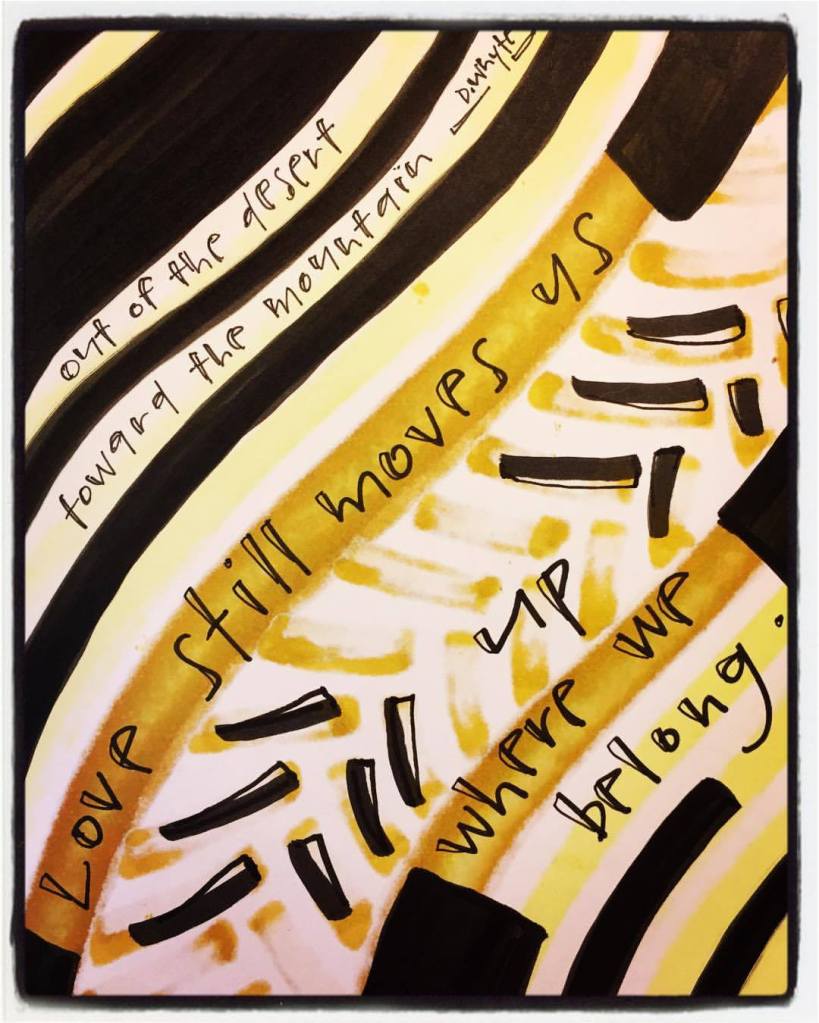 out of the desert
toward the mountain
D.Whyte
Love still moves us
up
where we
belong.